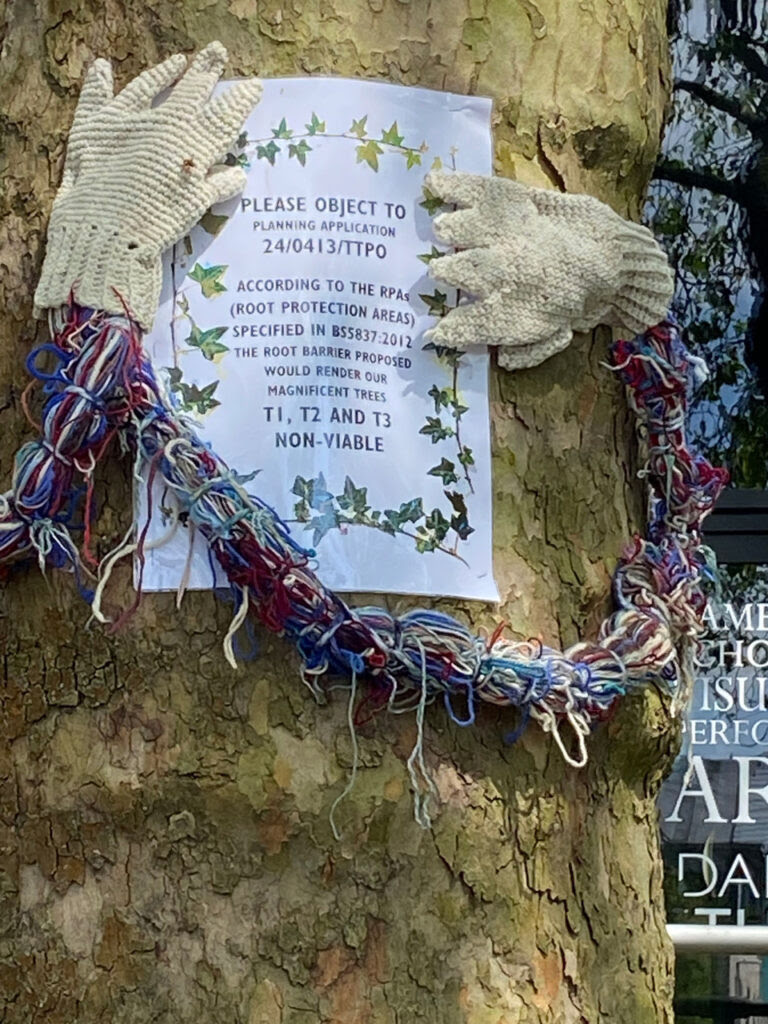 PLEASE OBJECT TO
PLANNING APPLICATION
24/0413/TTPO
ACCORDING TO THE RPAs
(ROOT PROTECTION AREAS)
SPECIFIED IN BS5837:2012
THE ROOT BARRIER PROPOSED
WOULD RENDER OUR
MAGNIFICENT TREES
T1, T2 AND T3
NON-VIABLE
AME
CHO
ISU
PERFO
AR
DA